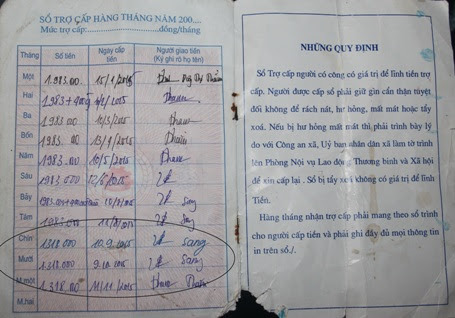 SỔ TRỢ CẤP HÀNG THÁNG NĂM 200.....
Mức trợ cấp:....................đồng/tháng
Tháng Số tiền Ngày cấp tiền Người giao tiền (Ký ghi rõ họ tên)
Một 1.983.000 15/1/2015
Hai 1983+400 2015 Pham
Ba 1983.000 10/3/2015 Pham
Bốn 1983.000 13/4/2015 Pham
Năm 1983.000 10/5/2015 Pham
Sáu 1983.000 12/6/2015
Bảy Sang
Tám 1983.000 Sang
Chín 1318.000 10.9.2015 Sang
Mười 1.318.000 9.10.2015 Sang
M.một 1.318.000 11/11/2015
M.hai
NHỮNG QUY ĐỊNH
Sổ Trợ cấp người có công có giá trị để lĩnh tiền trợ
cấp. Người được cấp sổ phải giữ gìn cẩn thận tuyệt
đối không để rách nát, hư hỏng, mất mát hoặc tẩy
xoá. Nếu bị hư hỏng mất mát thì phải trình bày lý
do với Công an xã, Uỷ ban nhân dân xã làm tờ trình
lên Phòng Nội vụ Lao động Thương binh và Xã hội
để xin cấp lại. Sổ bị tẩy xoá không có giá trị để lĩnh
Tiền.
Hàng tháng nhận trợ cấp phải mang theo sổ trình
cho người cấp tiền và phải ghi đầy đủ mọi thông tin
in trên sổ./.